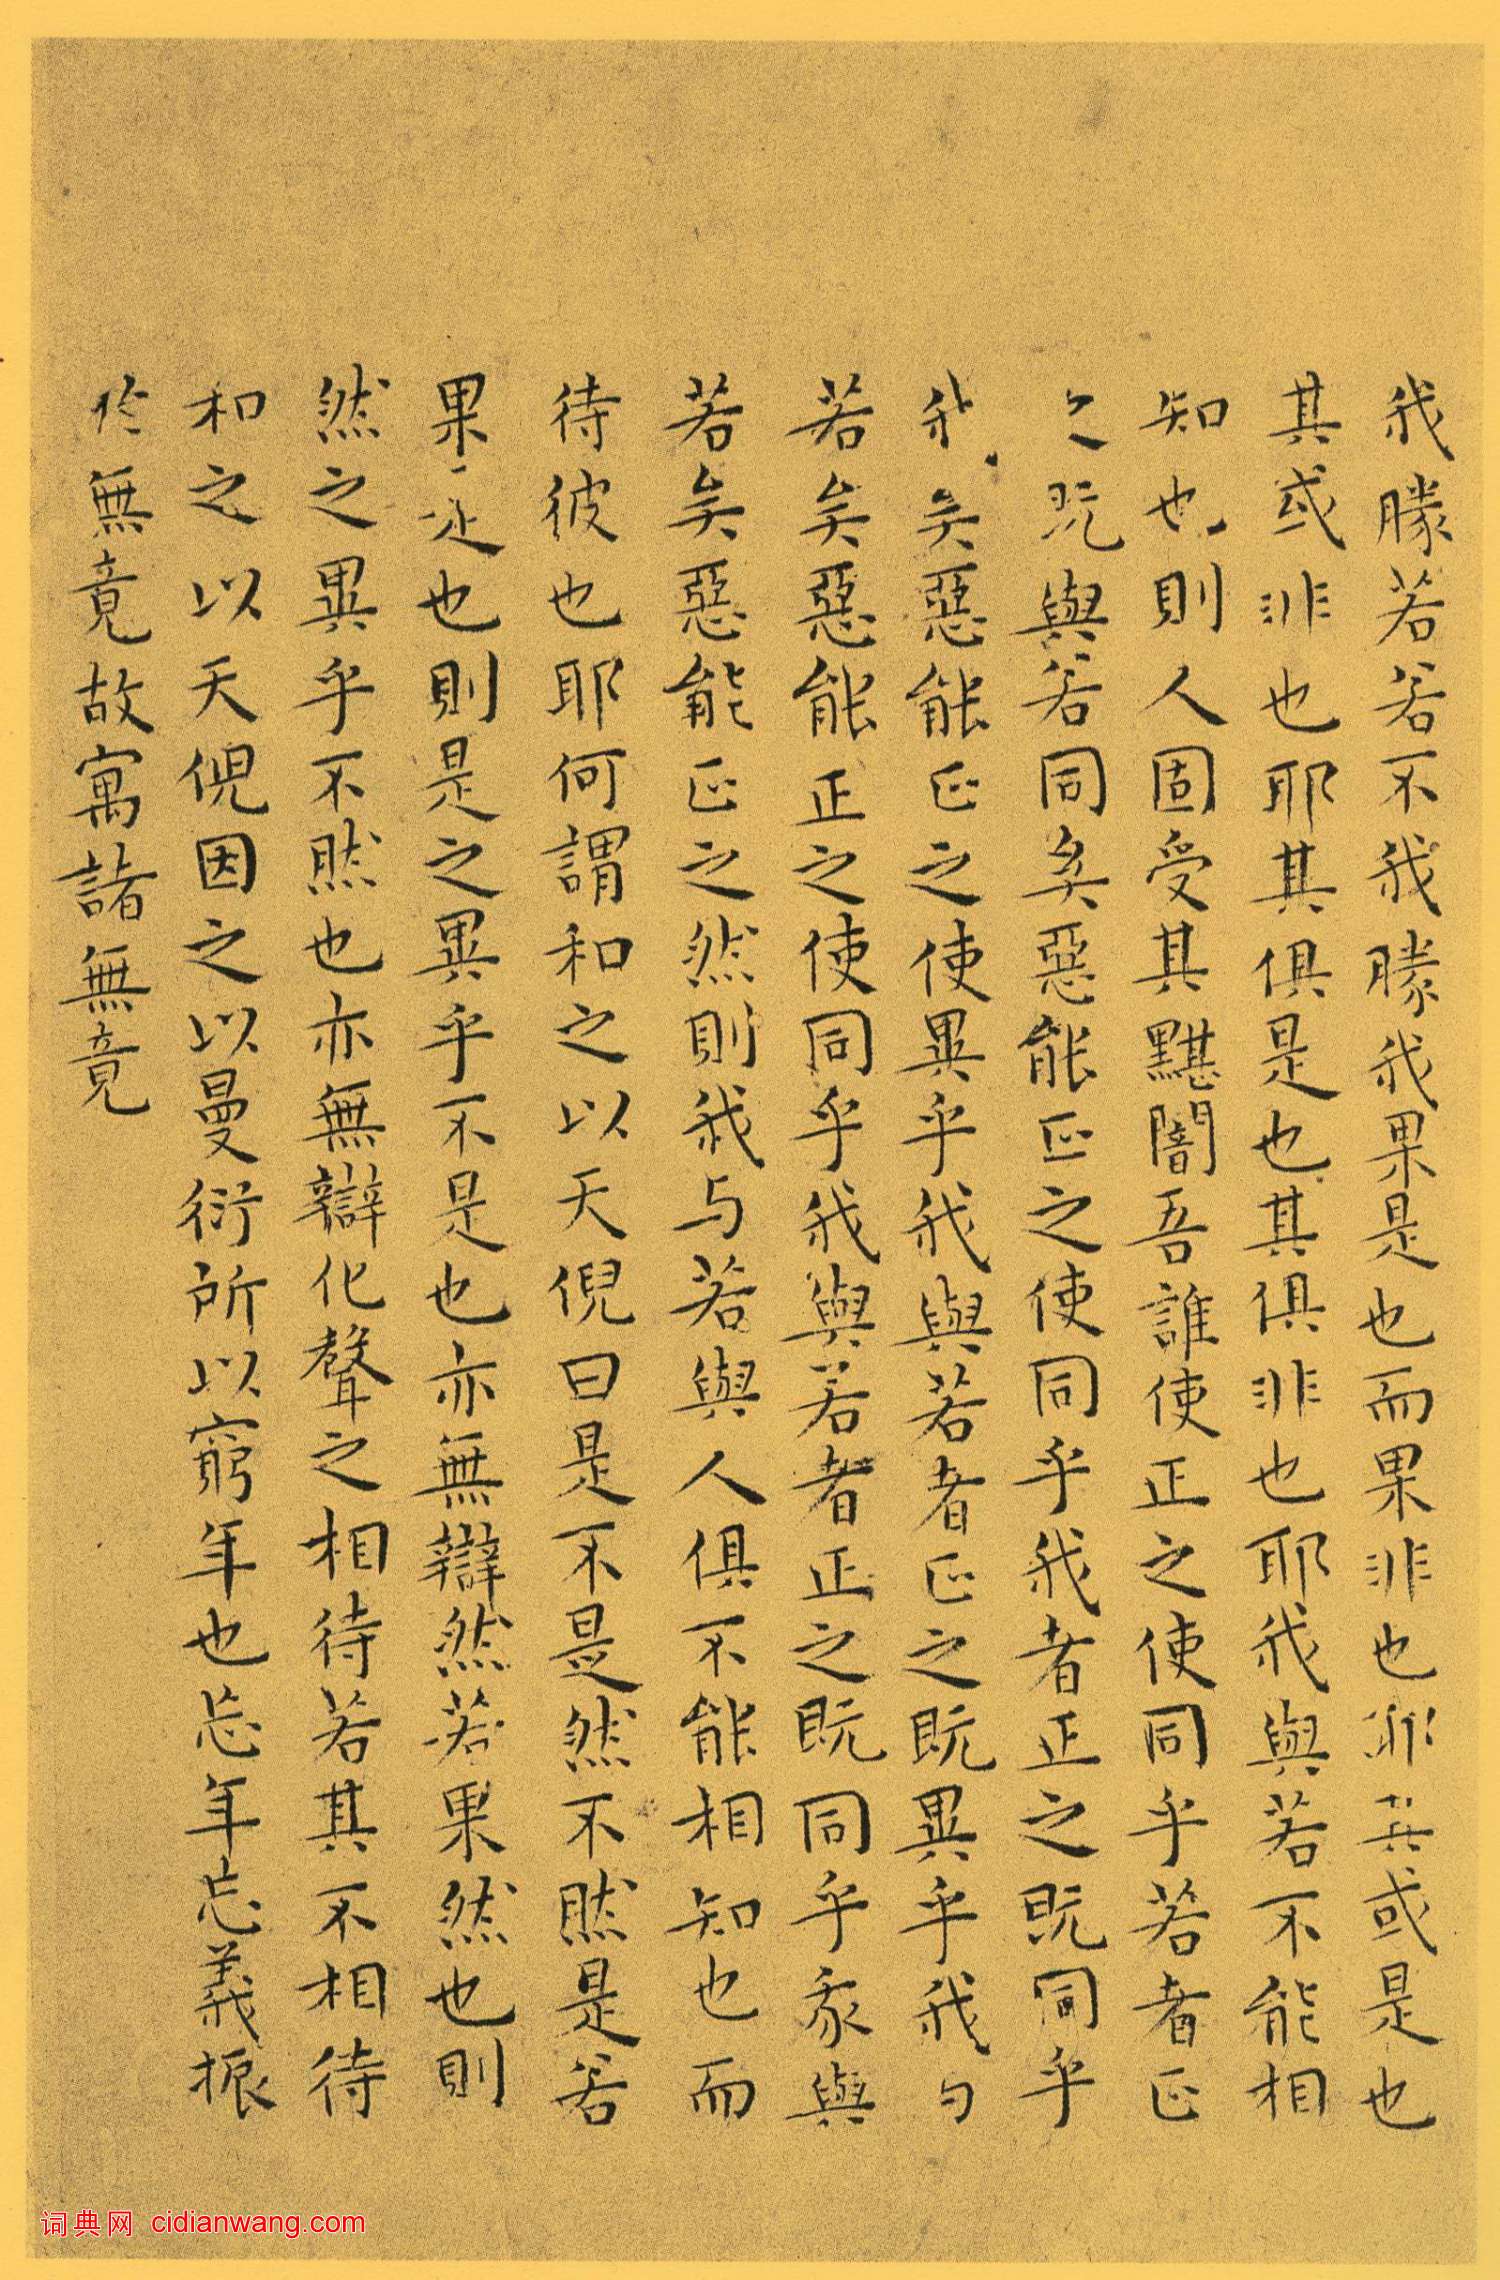 我勝若若不我勝我果是也而果非也耶其或是也
其或非也耶其俱是也其俱非也耶我與若不能相
知也則人固受其黮闇吾誰使正之使同乎若者正
之既與若同矣惡能正之使同乎我者正之既同乎
我矣惡能正之使異乎我與若者正之既異乎我与
若矣惡能正之使同乎我與若者正之既同乎我與
若矣惡能正之然則我与若與人俱不能相知也而
待彼也耶何謂和之以天倪曰是不是然不然是若
果是也則是之異乎不是也亦無辯然若果然也則
然之異乎不然也亦無辯化聲之相待若其不相待
和之以天倪因之以曼衍所以窮年也忘年忘義振
於無竟故寓諸無竟
词典网 cidianwang.com